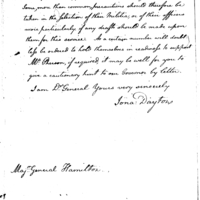 Some more than common precautions should therefore be
taken in the selection of these Militia, or of their officers
more particularly if any drafts should be made upon
them for this service. As a certain number will doubt
less be ordered to hold themselves in readiness to support
Mr Pearson, if required, it may be well for you to
give a cautionary hint to our Governor by letter.
I am Dr General Yours very sincerely
Jona Dayton
Majr General Hamilton.